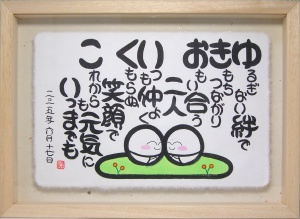 ゆるぎない絆で
きもちつながり
おもい合う
二人
いつも仲よく
くもらぬ
笑顔で
これから
も元気に
いつまでも
六月十七日